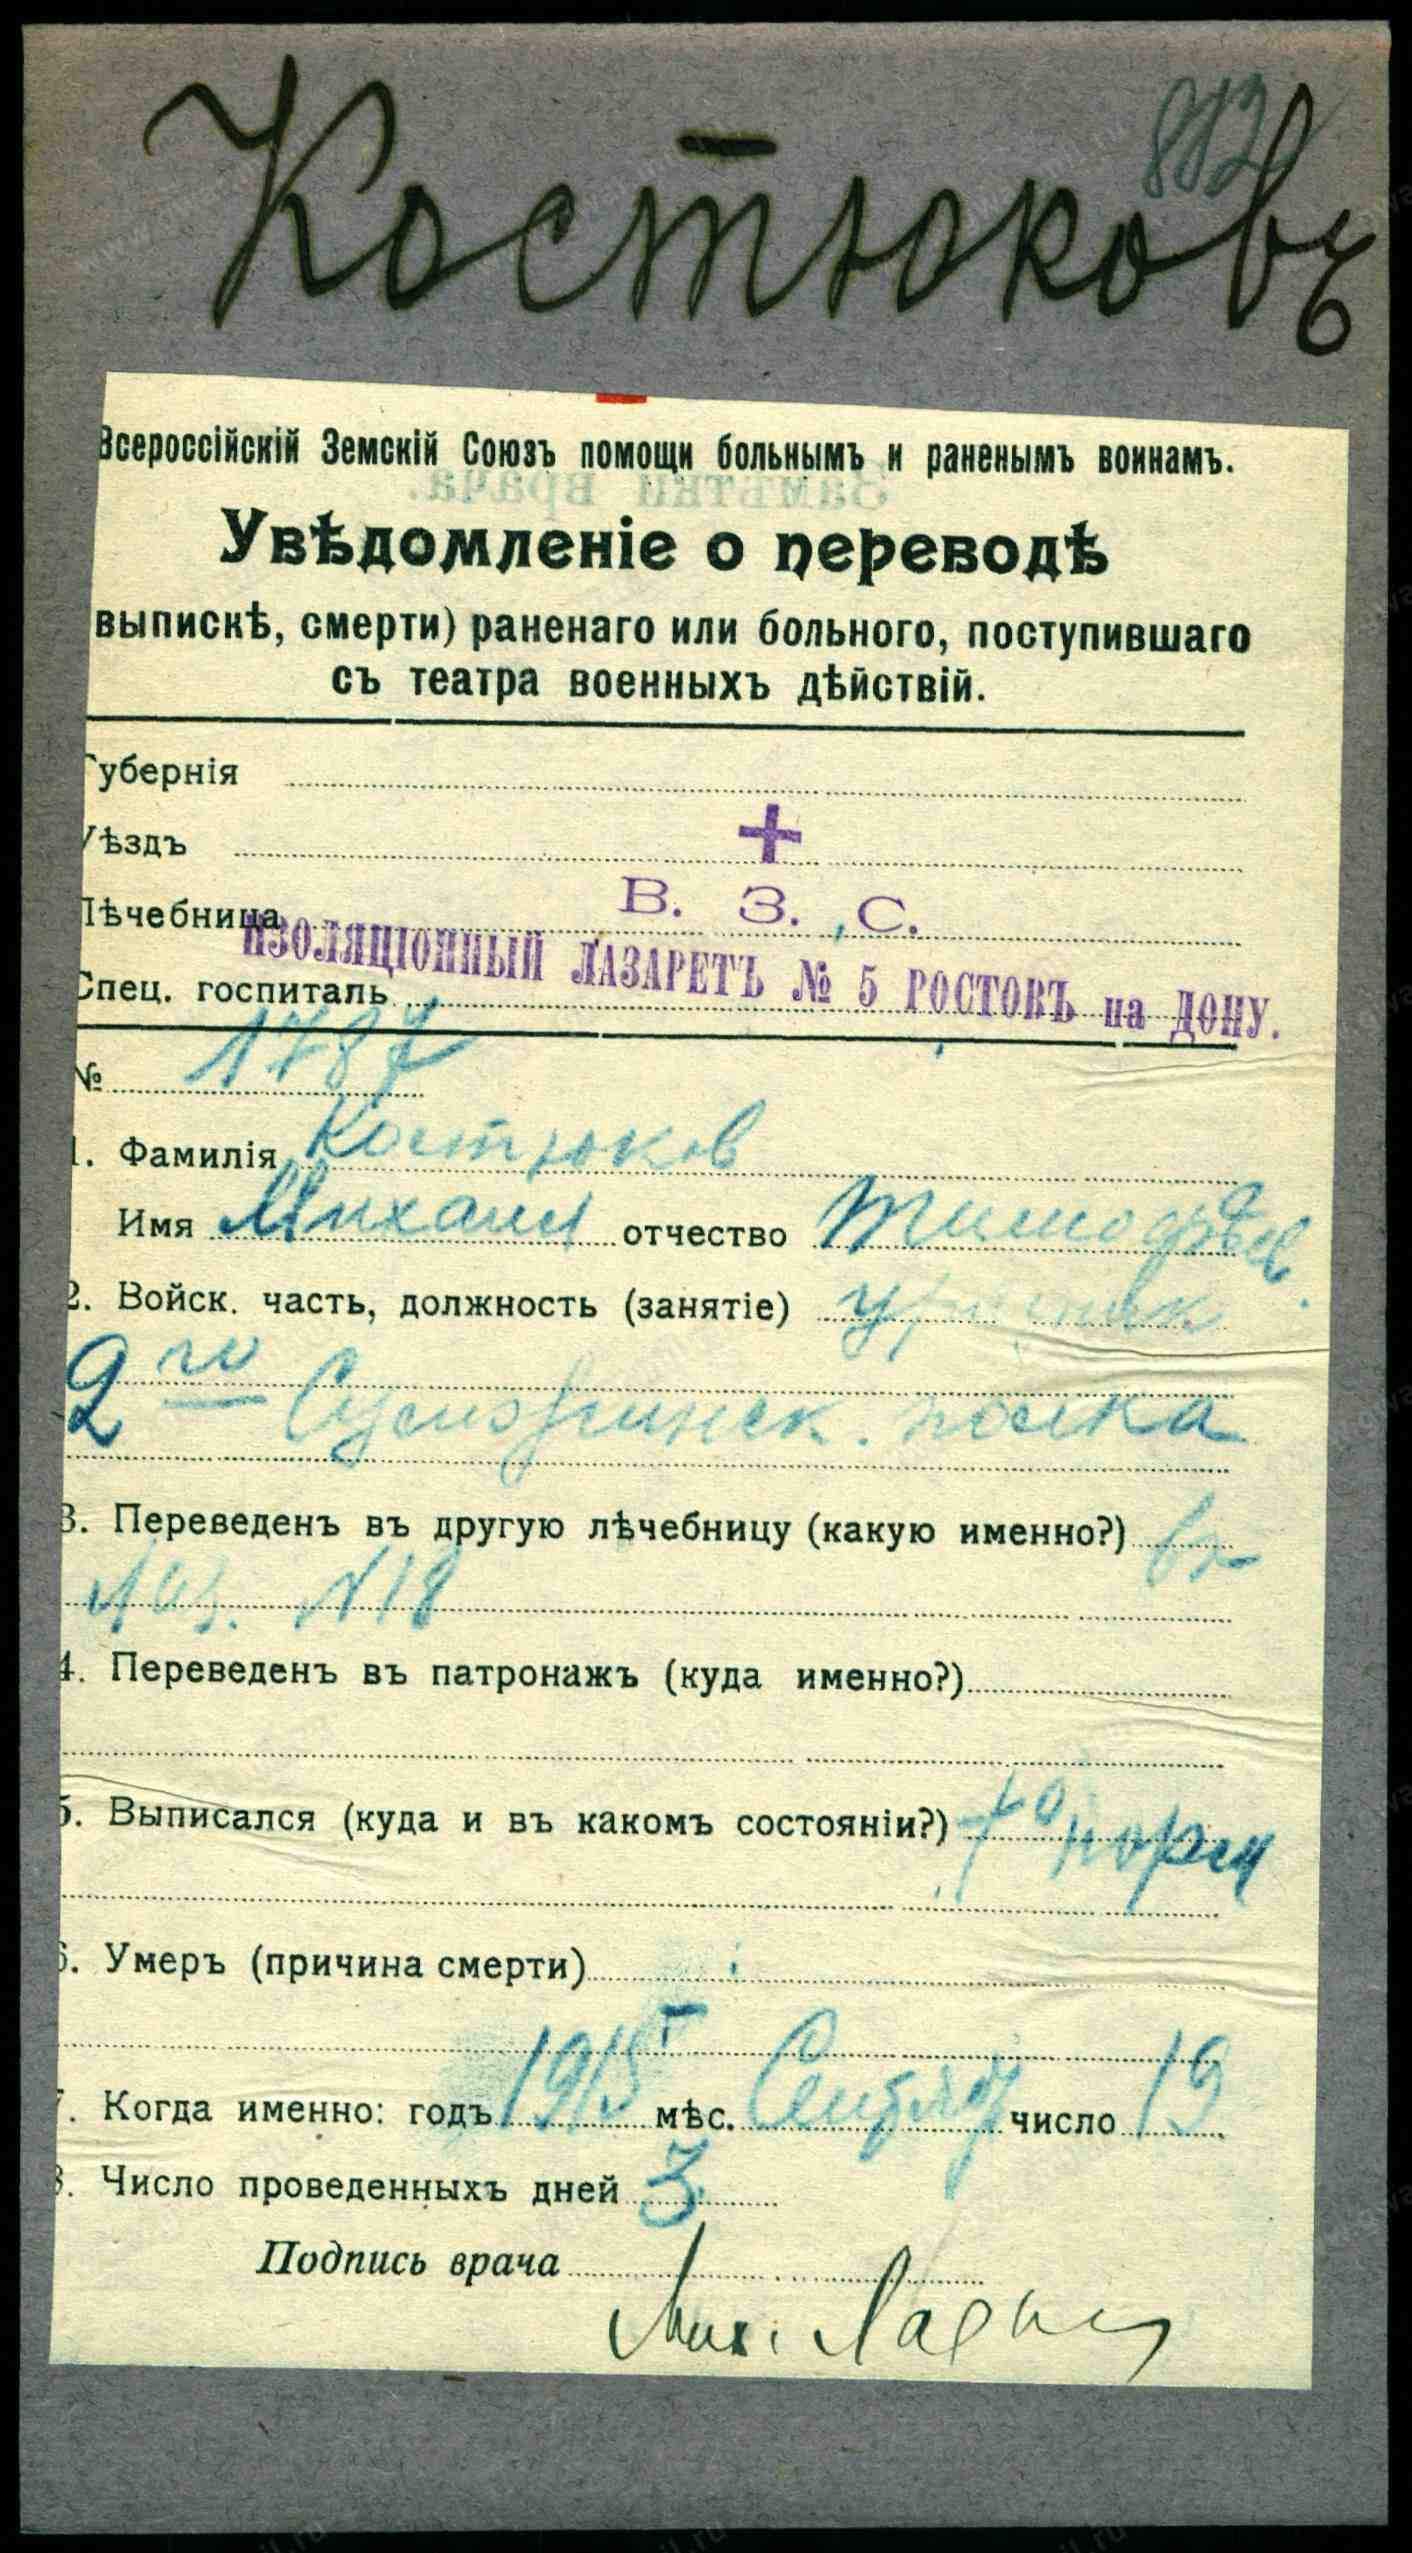 882
Костюковъ
Всероссійскій Земскій Союзъ помощи больнымъ и раненымъ воинамъ.
Замѣтки врача.
Увѣдомленіе о переводѣ
выпискѣ, смерти) раненаго или больного, поступившаго
съ театра военныхъ дѣйствій.
Губернія
Уѣздъ
Лѣчебница В. З. С.
ИЗОЛЯЦІОННЫЙ ЛАЗАРЕТЪ № 5 РОСТОВЪ на ДОНУ.
Спец. госпиталь
№ 1787
1. Фамилія Костюков
Имя Михаил отчество Тимофѣев.
2. Войск. часть, должность (занятіе) урядник
2го полка
3. Переведенъ въ другую лѣчебницу (какую именно?) въ
лаз. №18
4. Переведенъ въ патронажъ (куда именно?)
5. Выписался (куда и въ какомъ состояніи?) tº норм
6. Умеръ (причина смерти)
7. Когда именно: годъ 1915 г мѣс. Сентябр число 19
8. Число проведенныхъ дней 3
Подпись врача
Мих.